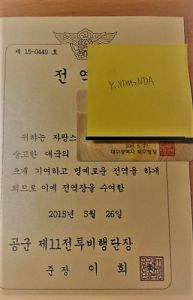 제 15-0449 호
전 역
대구광역시
귀하는 자랑스
숭고한
크게 기여하고 명예로운 전역을 하게
되므로 이에 전역장을 수여함
2015년 5월 26일
공군 제11전투비행단장
준장 이 희